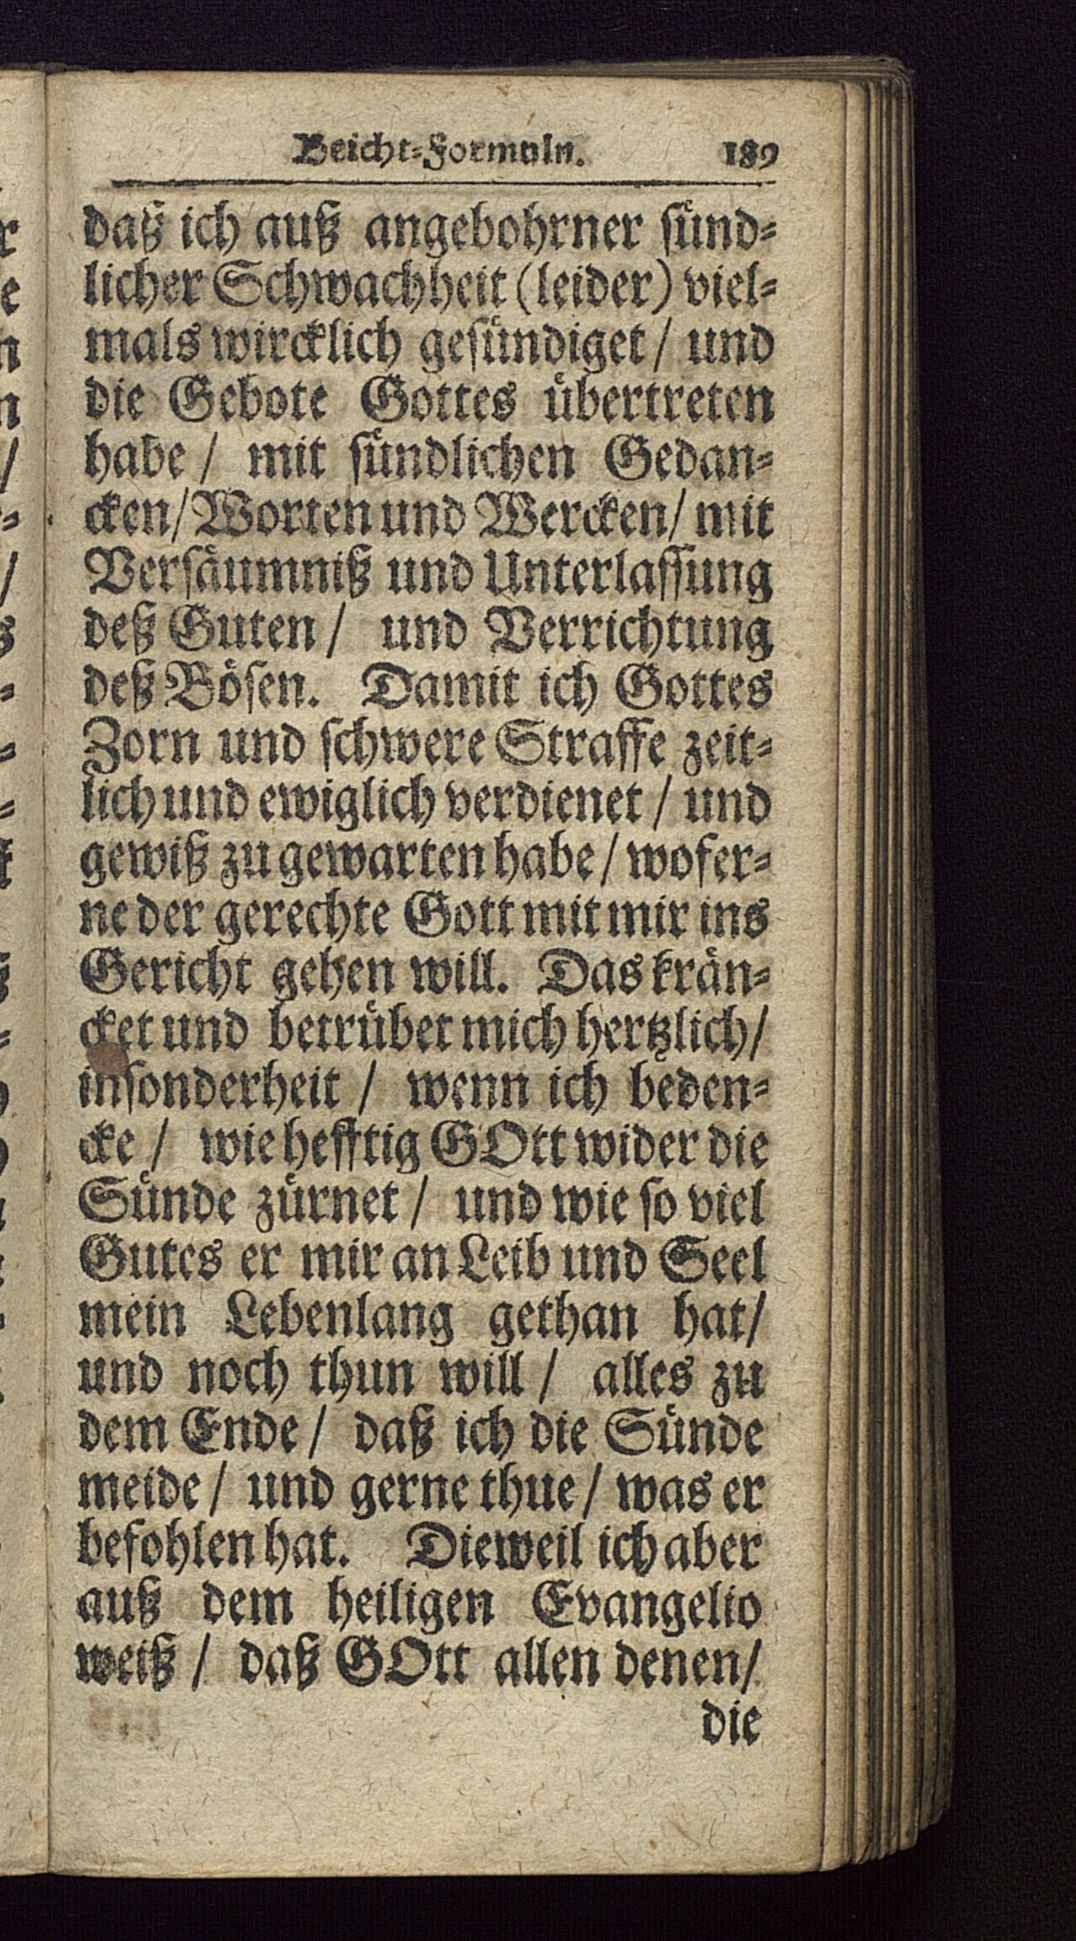 Beicht-Formuln. 189
daß ich auß angebohrner sünd-
licher Schwachheit (leider) viel-
mals wircklich gesündiget / und
die Gebote Gottes übertreten
habe / mit sündlichen Gedan-
cken/ Worten und Wercken/ mit
Versäumniß und Unterlassung
deß Guten / und Verrichtung
deß Bösen. Damit ich Gottes
Zorn und schwere Straffe zeit-
lich und ewiglich verdienet / und
gewiß zu gewarten habe / wofer-
ne der gerechte Gott mit mir ins
Gericht gehen will. Das krän-
cket und betrübet mich hertzlich/
insonderheit / wenn ich beden-
cke / wie hefftig GOtt wider die
Sünde zürnet / und wie so viel
Gutes er mir an Leib und Seel
mein Lebenlang gethan hat/
und noch thun will / alles zu
dem Ende / daß ich die Sünde
meide / und gerne thue / was er
befohlen hat. Dieweil ich aber
auß dem heiligen Evangelio
weiß / daß GOtt allen denen/
die